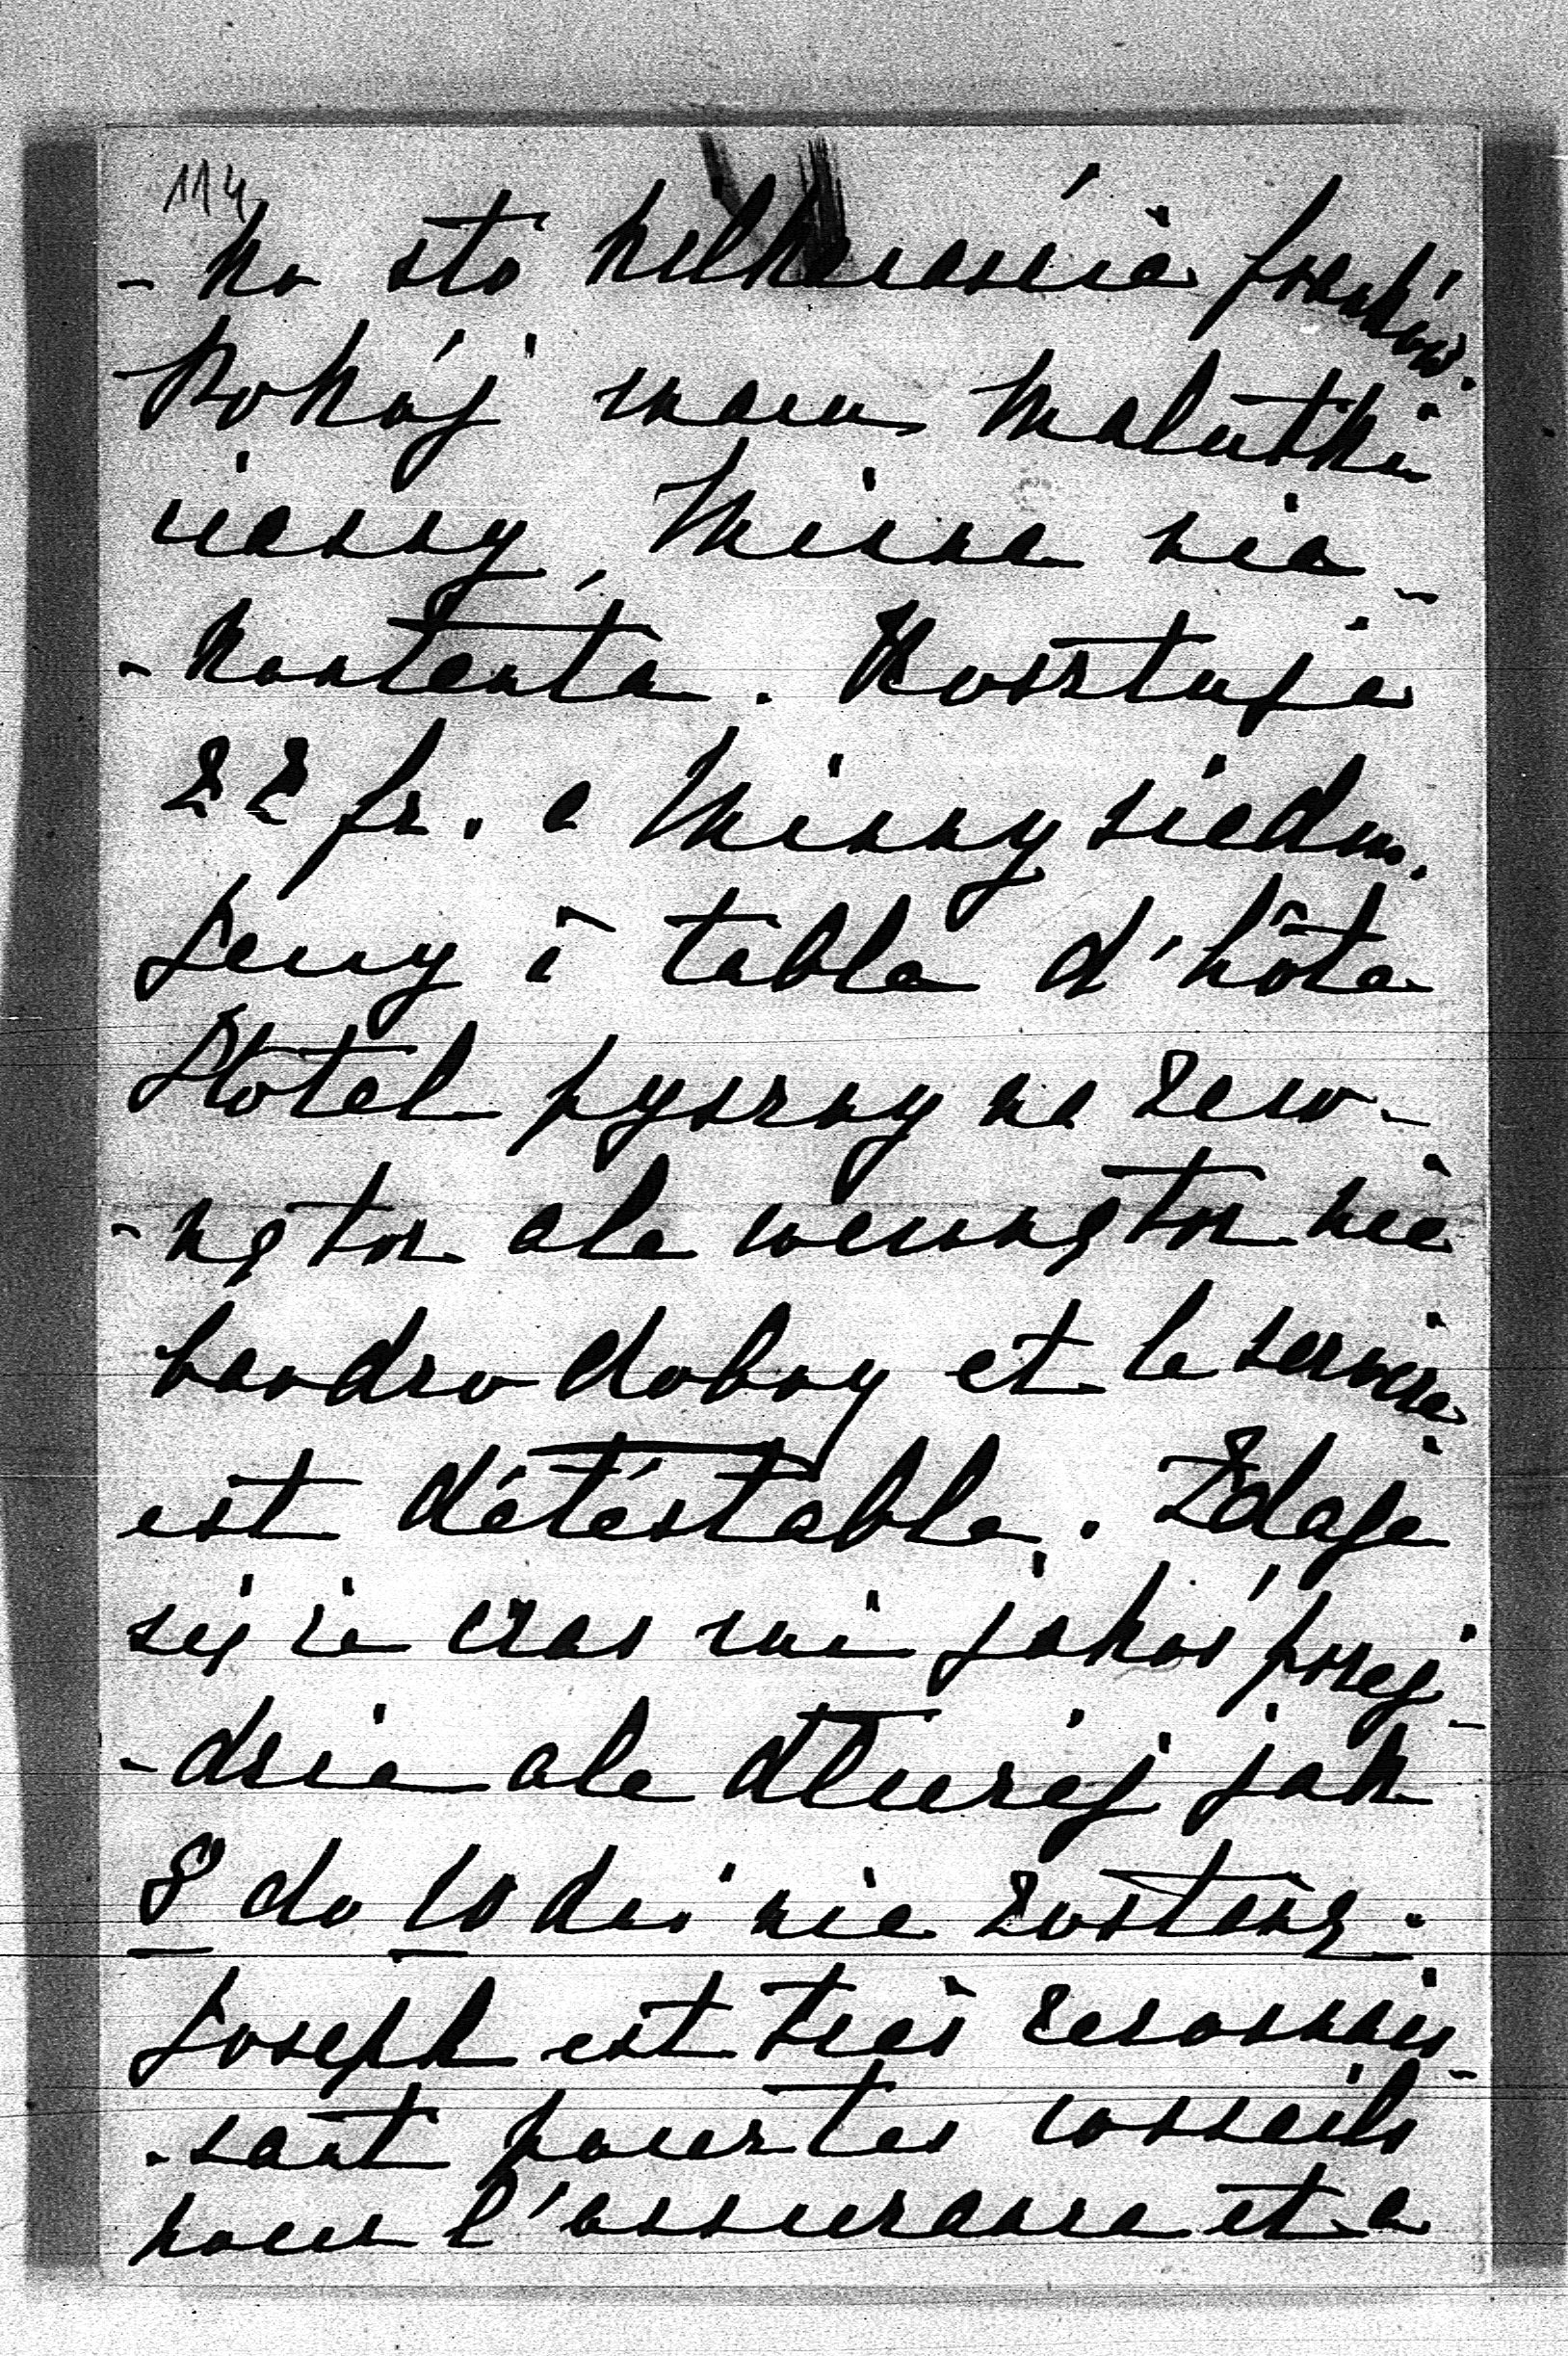 114
- ko sto kilkanaście franków.
Pokój mam malutki
ciasny, Missa nie-
- kontenta. Kosztuje
22 fr. a Missy siedm.
Jemy à table d'hôte
Hotel pyszny na zew-
- nątrz ale wewnątrz nie
bardzo dobry et le service
est détéstable. Zdaje
się że czas mi jakoś przej-
- dzie ale dłużej jak
8 do 10 dni nie zostanę.
Joseph est très reconnais-
- sant pour tes conseils
pour l'assurance et a